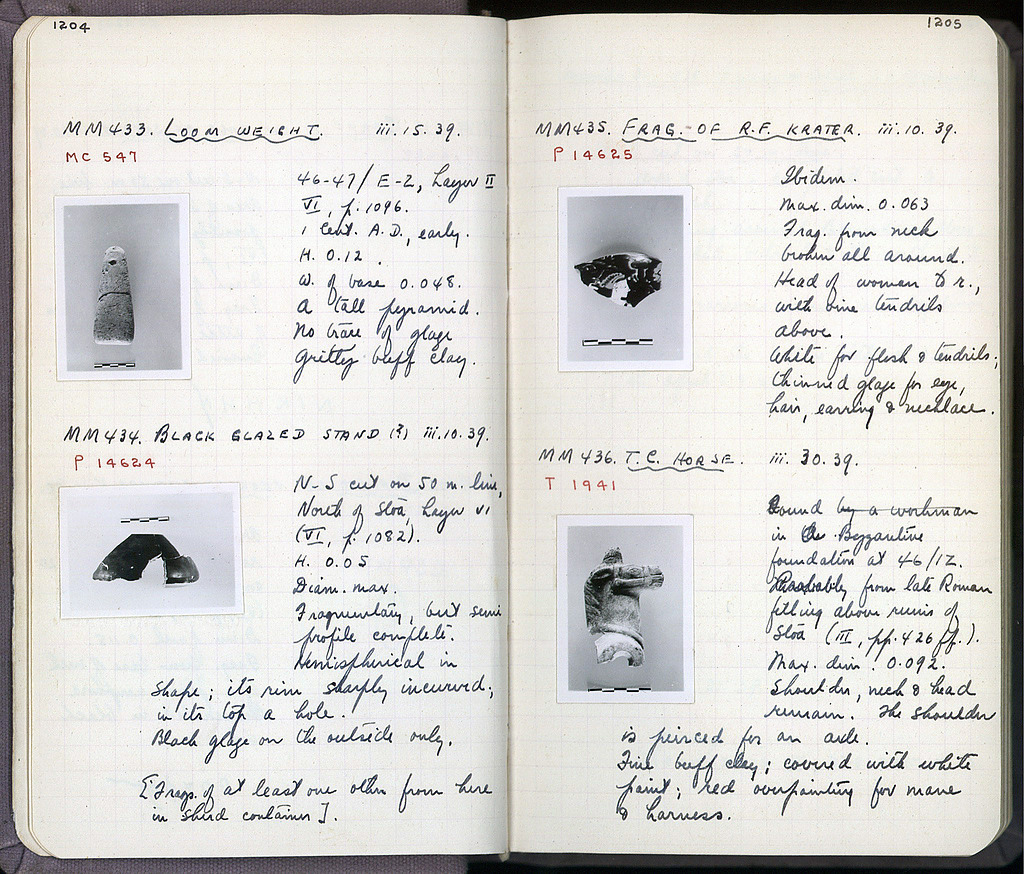 1204
MM433. LOOM WEIGHT. iii.15.39.
MC 547
46-47/E-2, Layer II
VI, p. 1096.
1 Cent. A.D., early.
H. 0.12.
W. of base 0.048.
A tall pyramid.
No trace of glaze
Gritty buff clay.
MM434. BLACK GLAZED STAND (?) iii.10.39.
P 14624
N-S cut on 50 m. line,
North of Stoa, Layer VI
(VI, p. 1082).
H. 0.05
Diam. max.
Fragmentary, but semi
profile complete.
Hemispherical in
shape; its rim sharply incurved;
in its top a hole.
Black glaze on the outside only.
[Frags. of at least one other from here
in sherd container].
1205
MM435. FRAG. OF R.F. KRATER. iii.10.39.
P 14625
Ibidem.
Max. dim. 0.063
Frag. from neck
broken all around.
Head of woman to r.,
with vine tendrils
above.
White for flesh & tendrils;
thinned glaze for eye,
hair, earring & necklace.
MM436. T.C. HORSE. iii.30.39.
T 1941
Found by a workman
in the Byzantine
foundation at 46/IZ.
Probably from late Roman
filling above ruins of
Stoa (III, pp. 426 ff.).
Max. dim. 0.092.
Shoulder, neck & head
remain. The shoulder
is peirced for an axle.
Fine buff clay; covered with white
paint; red overpainting for mane
& harness.